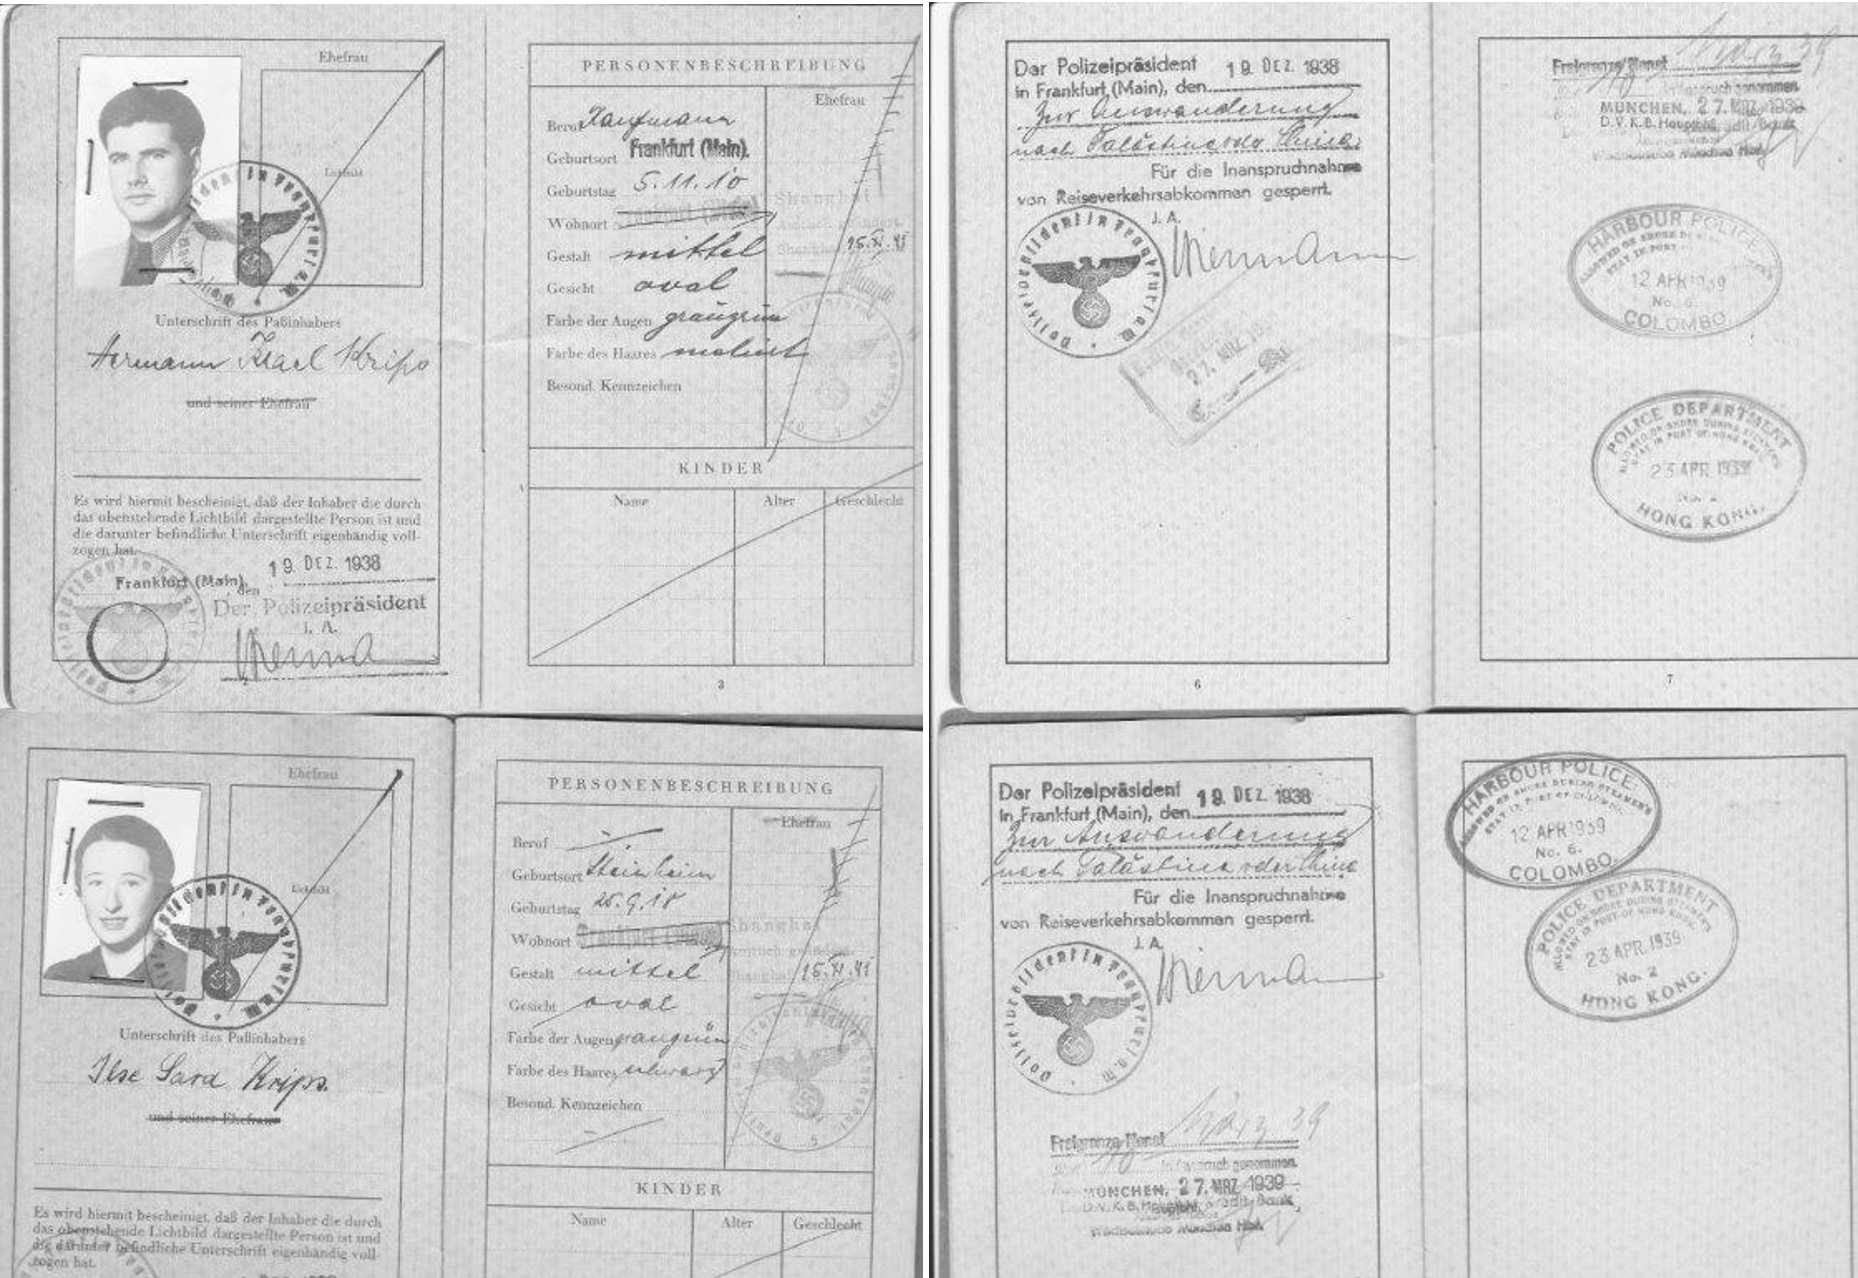 Ehefrau
Lichtbild
Unterschrift des Paßinhabers
Hermann Israel Krips
und seiner Ehefrau
Es wird hiermit bescheinigt, daß der Inhaber die durch
das obenstehende Lichtbild dargestellte Person ist und
die darunter befindliche Unterschrift eigenhändig voll-
zogen hat.
Frankfurt (Main), den 19. DEZ. 1938
Der Polizeipräsident
I. A.
PERSONENBESCHREIBUNG
Ehefrau
Beruf Kaufmann
Geburtsort Frankfurt (Main).
Geburtstag 5.11.10
Wohnort Frankfurt (Main) Shanghai
Gestalt mittel Shanghai 15.XI.41
Gesicht oval
Farbe der Augen graugrün
Farbe des Haares meliert
Besond. Kennzeichen
KINDER
Name Alter Geschlecht
3
Der Polizeipräsident
in Frankfurt (Main), den 19. DEZ. 1938
Zur Auswanderung
nach Palästina oder China
Für die Inanspruchnahme
von Reiseverkehrsabkommen gesperrt.
J. A.
Polizeipräsident in Frankfurt a. M.
27. MRZ
6
Freigrenze Monat März 39
in Anspruch genommen
MÜNCHEN, 27. MRZ. 1939
HARBOUR POLICE
ALLOWED ON SHORE DURING STEAMER'S
STAY IN PORT
12 APR 1939
No. 6.
COLOMBO.
POLICE DEPARTMENT
ALLOWED ON SHORE DURING STEAMERS
STAY IN PORT OF HONG KONG
23 APR. 1939
No. 2
HONG KONG.
7
Ehefrau
Lichtbild
Unterschrift des Paßinhabers
Ilse Sara Krips.
und seiner Ehefrau
Es wird hiermit bescheinigt, daß der Inhaber die durch
das obenstehende Lichtbild dargestellte Person ist und
die darunter befindliche Unterschrift eigenhändig voll-
zogen hat.
PERSONENBESCHREIBUNG
Ehefrau
Beruf
Geburtsort Steinheim
Geburtstag
Wohnort Frankfurt (Main) Shanghai
Gestalt mittel Shanghai 15.XI.41
Gesicht oval
Farbe der Augen graugrün
Farbe des Haares schwarz
Besond. Kennzeichen
KINDER
Name Alter Geschlecht
Der Polizeipräsident
in Frankfurt (Main), den 19. DEZ. 1938
Zur Auswanderung
nach Palästina oder China
Für die Inanspruchnahme
von Reiseverkehrsabkommen gesperrt.
J. A.
Polizeipräsident in Frankfurt a. M.
Freigrenze Monat März 39
in Anspruch genommen.
MÜNCHEN, 27. MRZ. 1939
HARBOUR POLICE
ALLOWED ON SHORE DURING STEAMER'S
STAY IN PORT OF COLOMBO
12 APR 1939
No. 6.
COLOMBO.
POLICE DEPARTMENT
ALLOWED ON SHORE DURING STEAMERS
STAY IN PORT OF HONG KONG
23 APR. 1939
No. 2
HONG KONG.